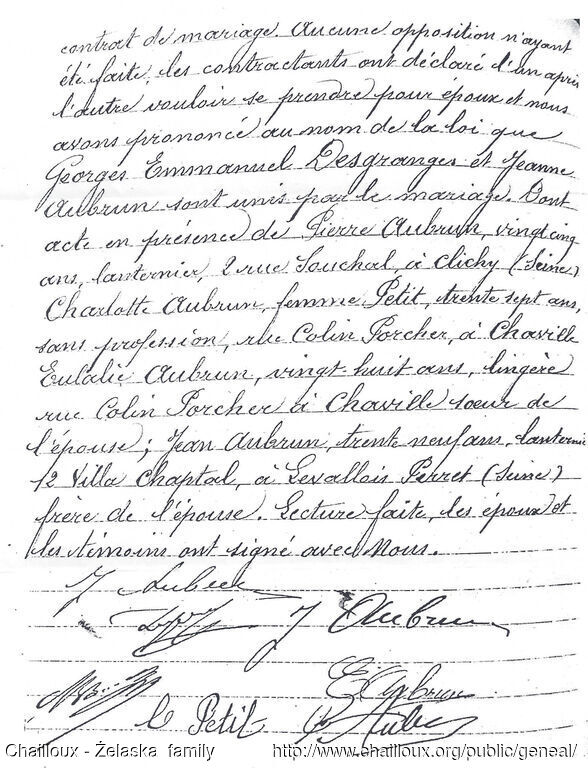 contrat de mariage. Aucune opposition n'ayant
été faite, les contractants ont déclaré l'un après
l'autre vouloir se prendre pour époux et nous
avons prononcé au nom de la loi que
Georges Emmanuel Desgranges et Jeanne
Aubrun sont unis par le mariage. Dont
acte en présence de Pierre Aubrun, vingt cinq
ans, lanternier, 2 rue Souchal, à Clichy (Seine)
Charlotte Aubrun, femme Petit, trente sept ans,
sans profession, rue Colin Porcher, à Chaville
Eulalie Aubrun, vingt huit ans, lingère
rue Colin Porcher à Chaville sœur de
l'épouse; Jean Aubrun, trente neuf ans, lanternier
12 Villa Chaptal, à Levallois Perret (Seine)
frère de l'épouse. Lecture faite, les époux et
les témoins ont signé avec Nous.
J Aubrun
J Aubrun
E Aubrun
C Petit
Chailloux - Żelaska family http://www.chailloux.org/public/geneal/